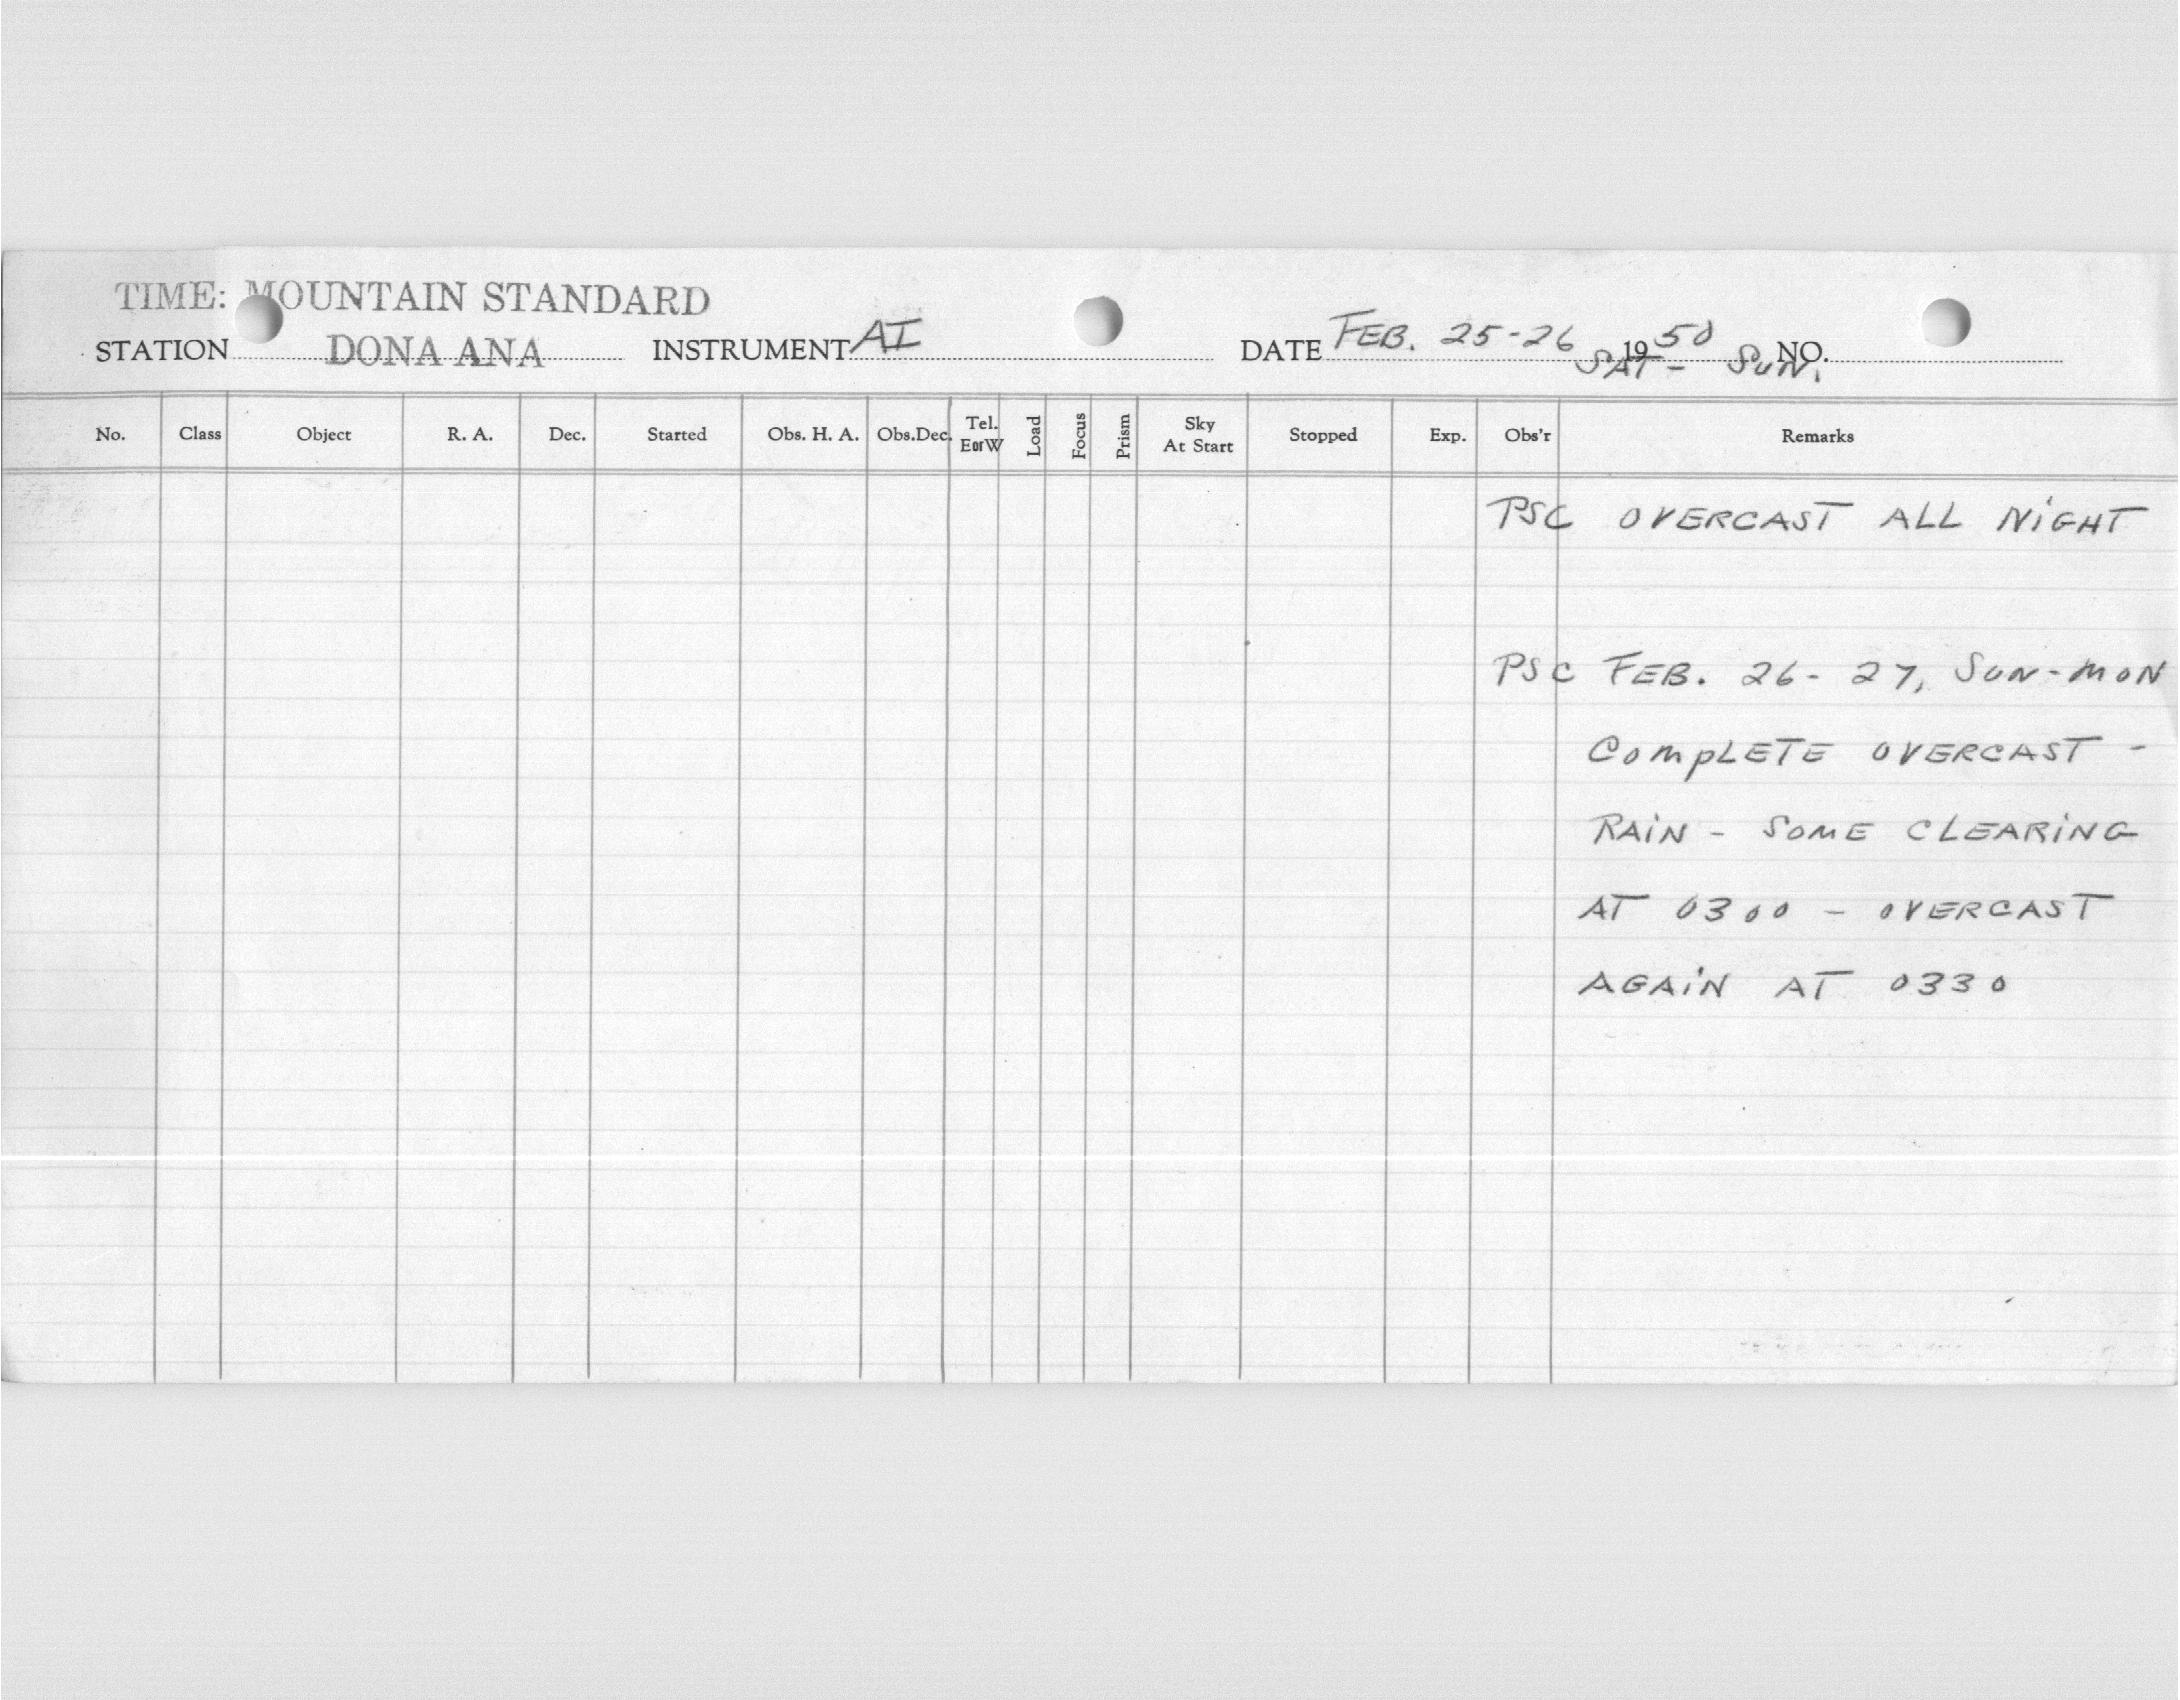 TIME: MOUNTAIN STANDARD
STATION DONA ANA INSTRUMENT AI DATE FEB. 25-26 1950 NO.
SAT- SUN.
No. Class Object R. A. Dec. Started Obs. H. A. Obs.Dec. Tel. E or W Load Focus Prism Sky At Start Stopped Exp. Obs'r Remarks
PSC OVERCAST ALL NIGHT
PSC FEB. 26-27, SUN-MON
COMPLETE OVERCAST -
RAIN - SOME CLEARING
AT 0300 - OVERCAST
AGAIN AT 0330